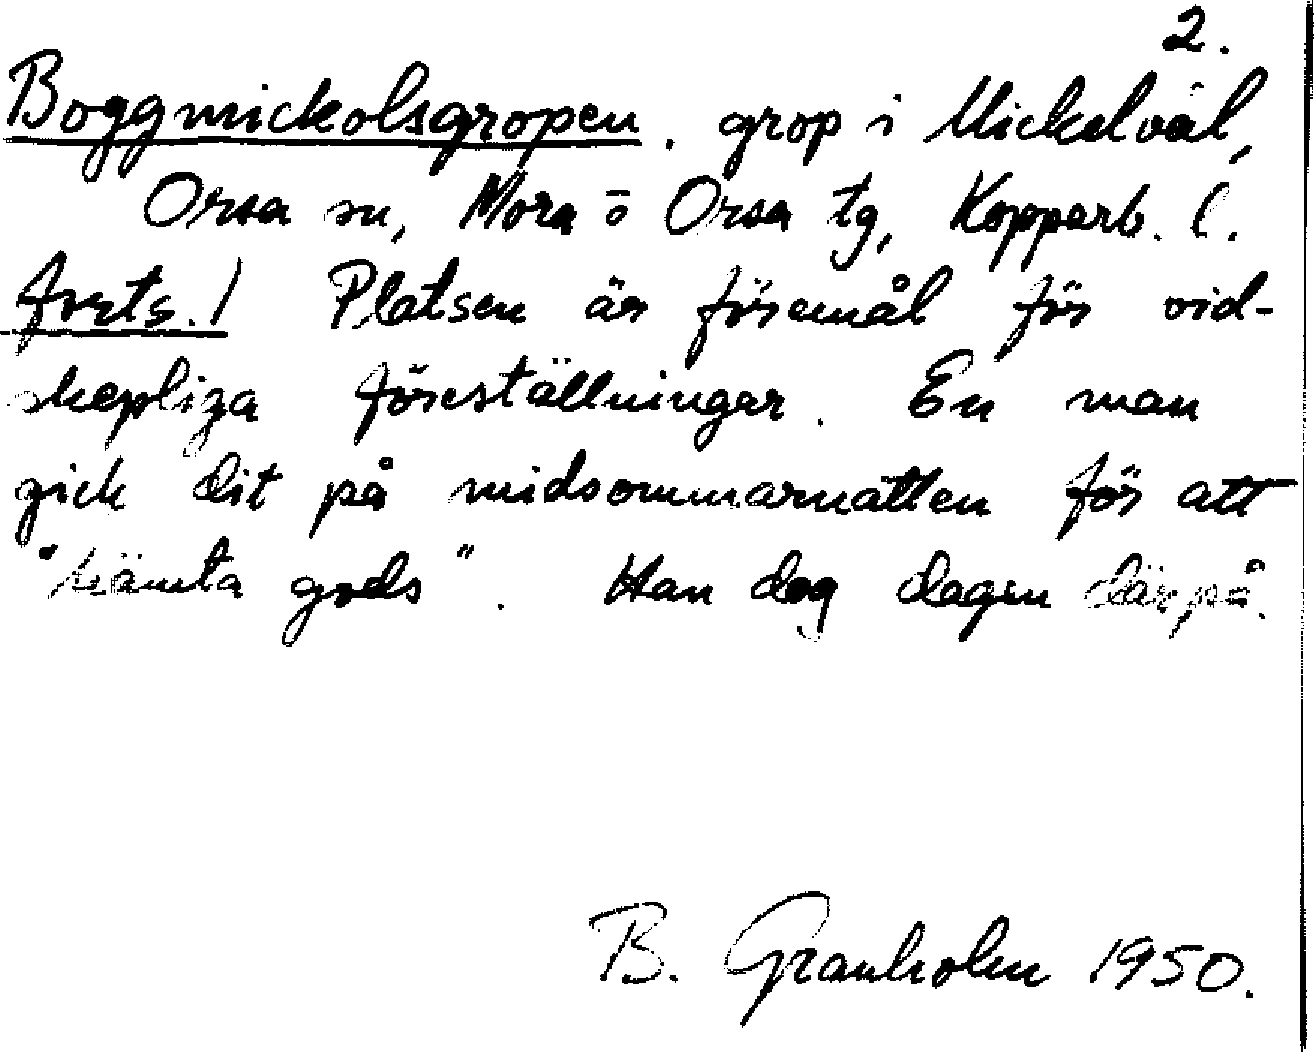 2.
Boggmickolsgropen. grop i Mickelvål,
Orsa sn, Mora o Orsa tg, Kopparb. l.
forts./ Platsen är föremål för vid-
skepliga föreställningar. En man
gick dit på midsommarnatten för att
"hämta gods". Han dog dagen därpå.
B. Granholm 1950.